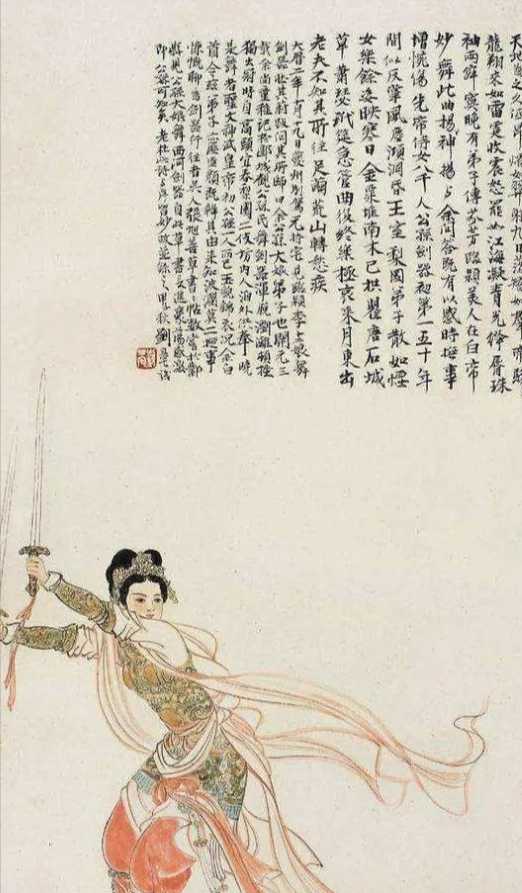 天地為之久低昂㸌如羿射九日落矯如
龍翔來如雷霆收震怒罷如江海凝青光絳脣珠
袖兩寞晚有弟子傳芬芳臨潁美人在白帝
妙舞此曲揚神揚与余問答既有以感時撫事
增惋傷先帝侍女八千人公孫劍器初第一五十年
間似反掌風塵澒洞昏王室梨園弟子散如煙
女樂餘姿映寒日金粟堆南木已拱瞿唐石城
草蕭瑟玳筵急管曲復終樂極哀來月東出
老夫不知其所往足繭荒山轉愁疾
大曆二年十月十九日夔州別駕元持宅見臨潁李十二娘舞
劍器壯其蔚跂問其所師曰余公孫大娘弟子也開元三
載余尚童稚記於郾城觀公孫氏舞劍器渾脫瀏灕頓挫
獨出冠時自高頭宜春梨園二伎坊內人洎外供奉曉
是舞者聖文神武皇帝初公孫一人而已玉貌錦衣況余白
首今茲弟子亦匪盛顏既辨其由來知波瀾莫二撫事
慷慨聊為劍器行往者吳人張旭善草書書帖數嘗於鄴
縣見公孫大娘舞西河劍器自此草書長進豪蕩感激
即公孫可知矣老杜此詩